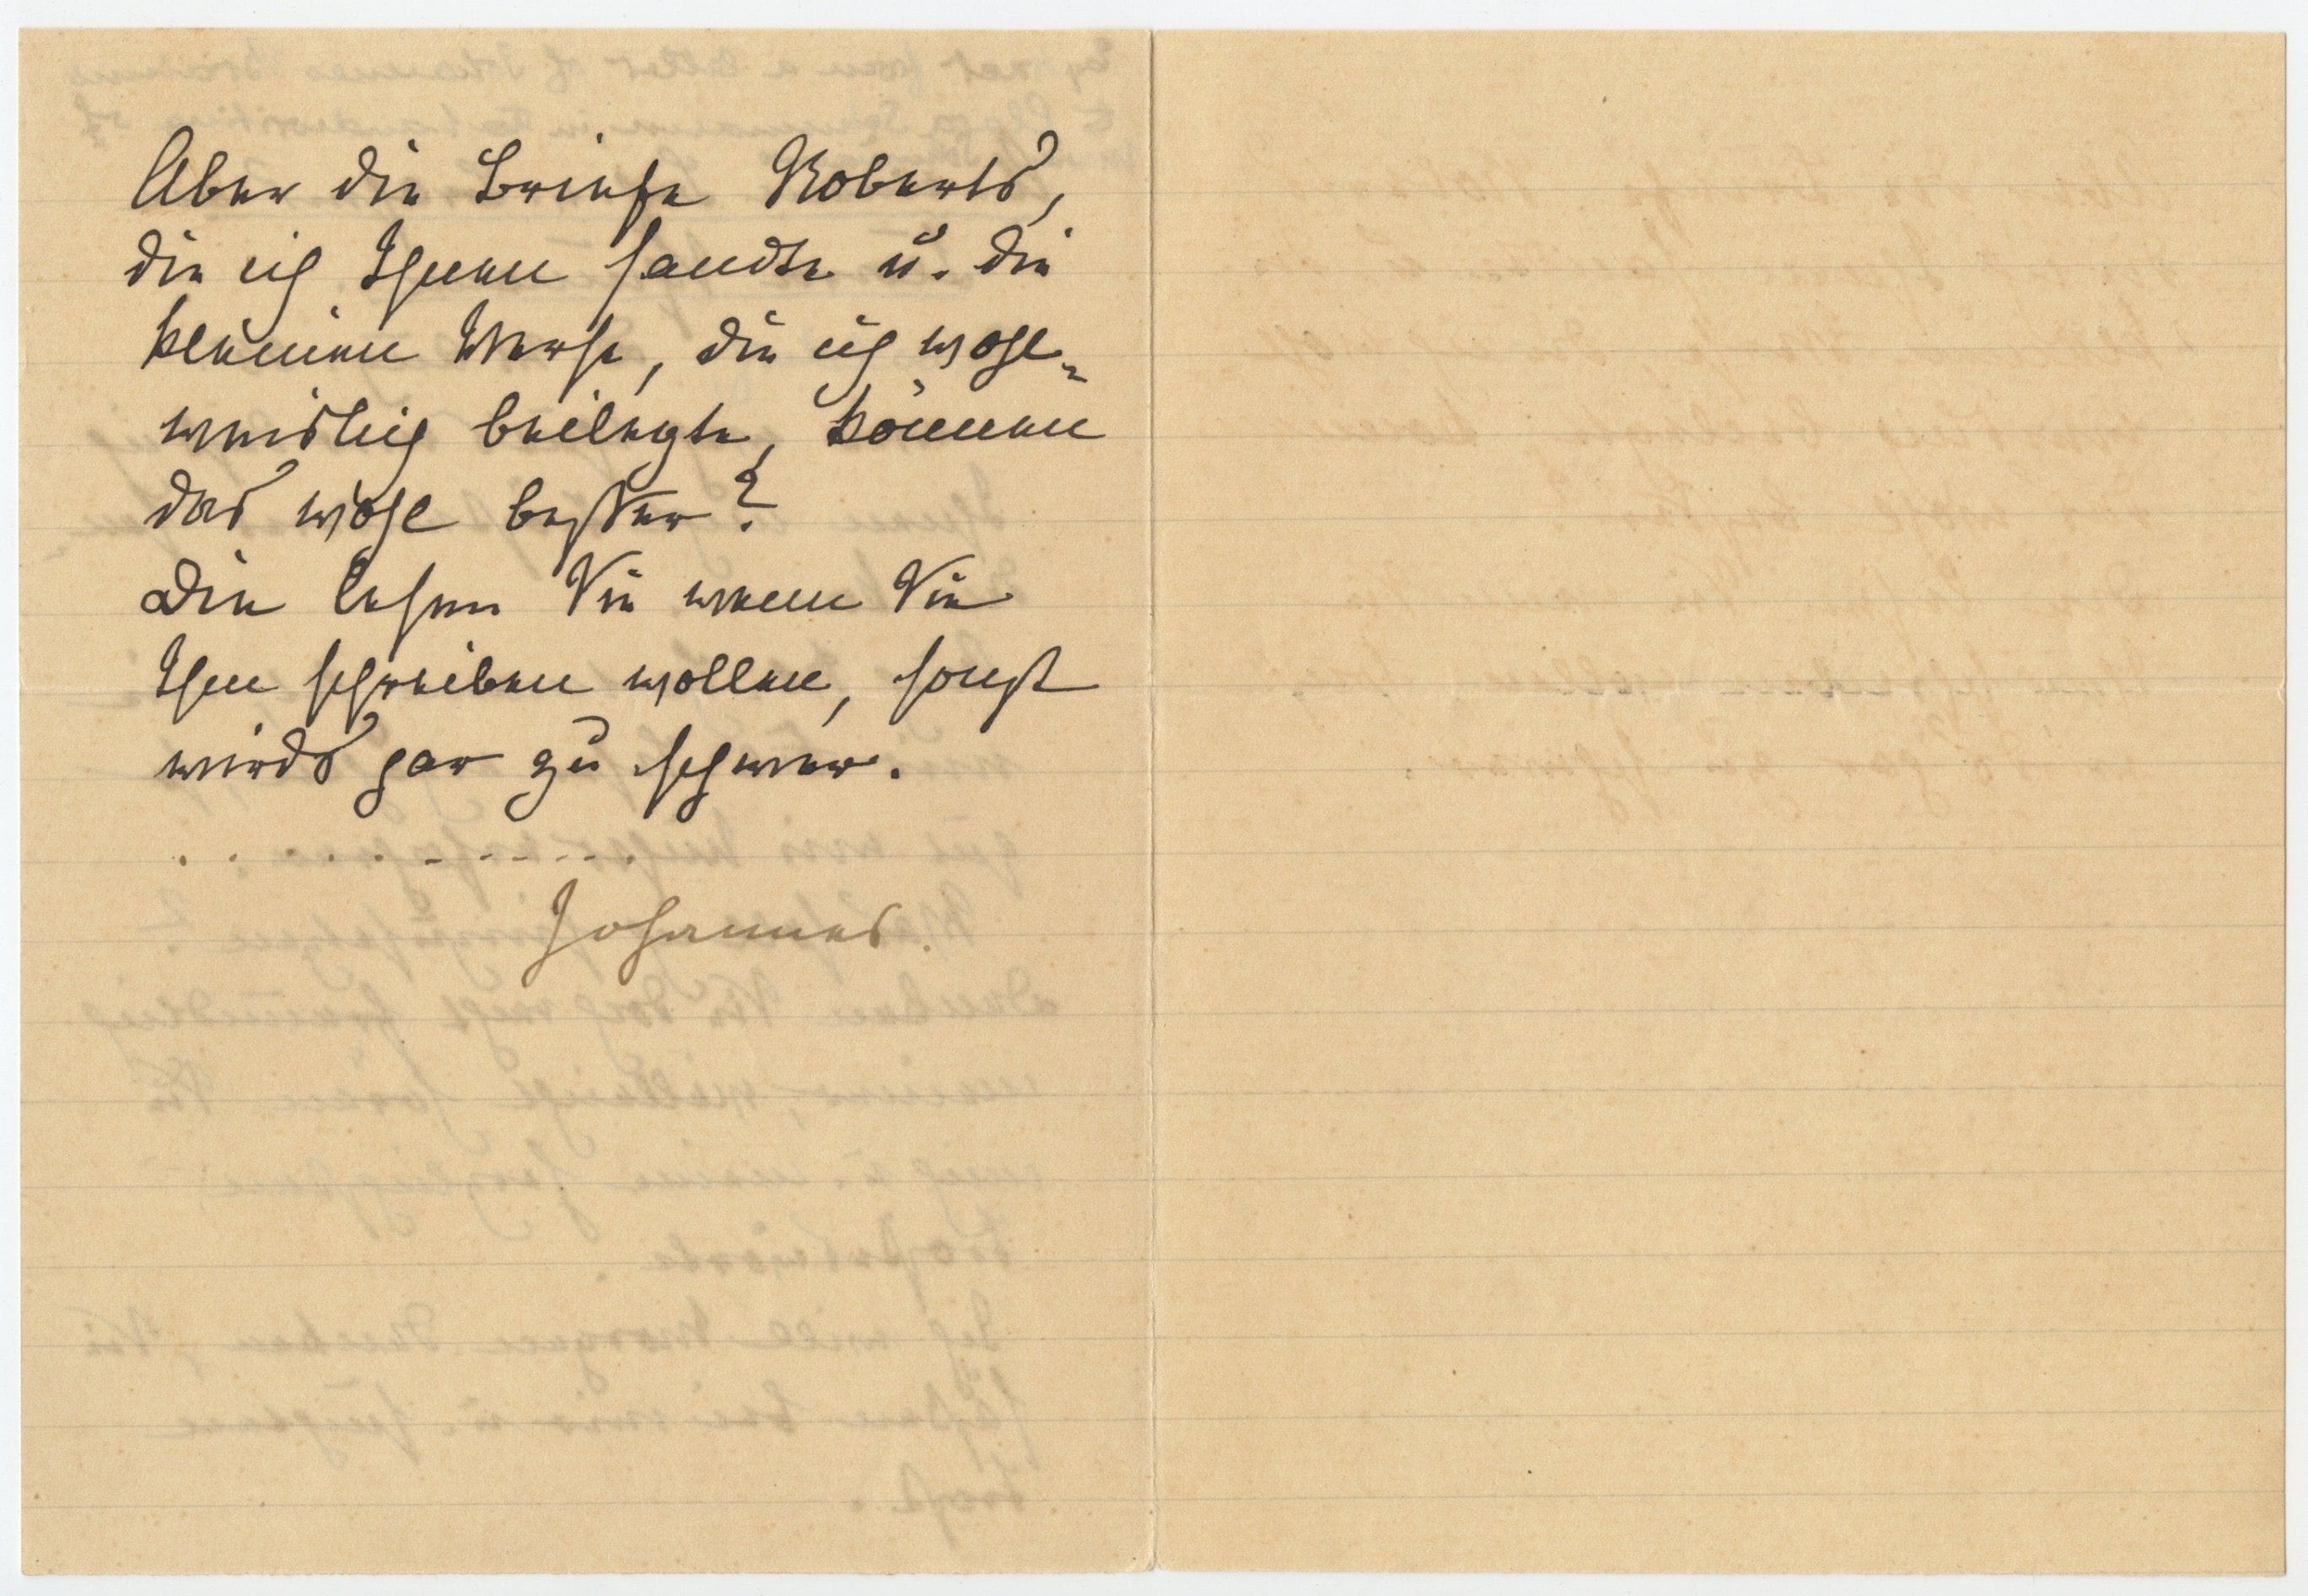 Aber die Briefe Roberts,
die ich Ihnen sandte u. die
kleinen Verse, die ich wohl-
weislich beilegte, können
das wohl besser?
Die lesen Sie wenn Sie
Ihm schreiben wollen, sonst
wirds gar zu schwer.
. . . . . . . . . . . .
Johannes.